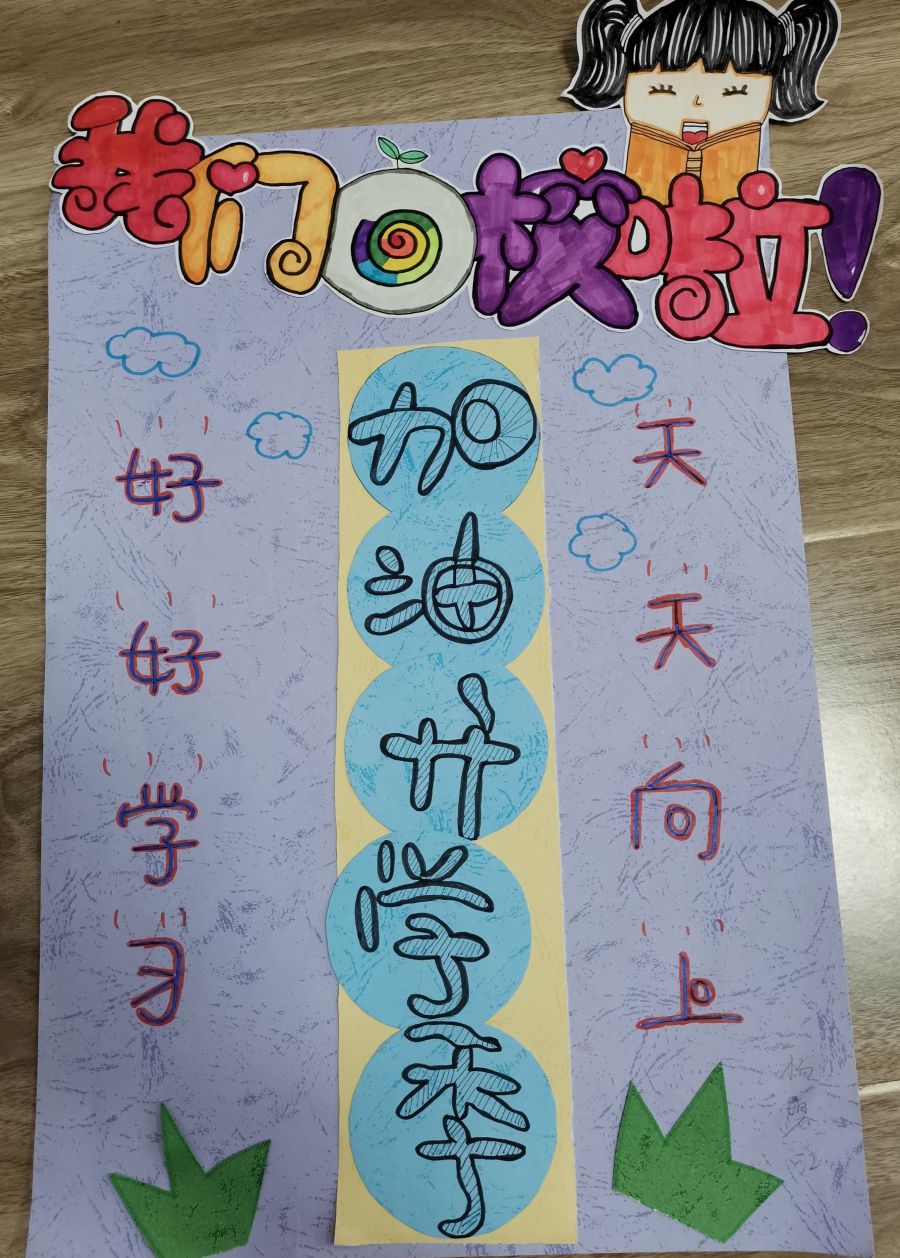 我们回校啦!
好好学习
加油开学季
天天向上